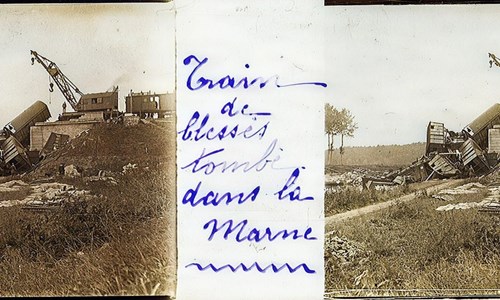 Train
de
blessés
tombé
dans la
Marne